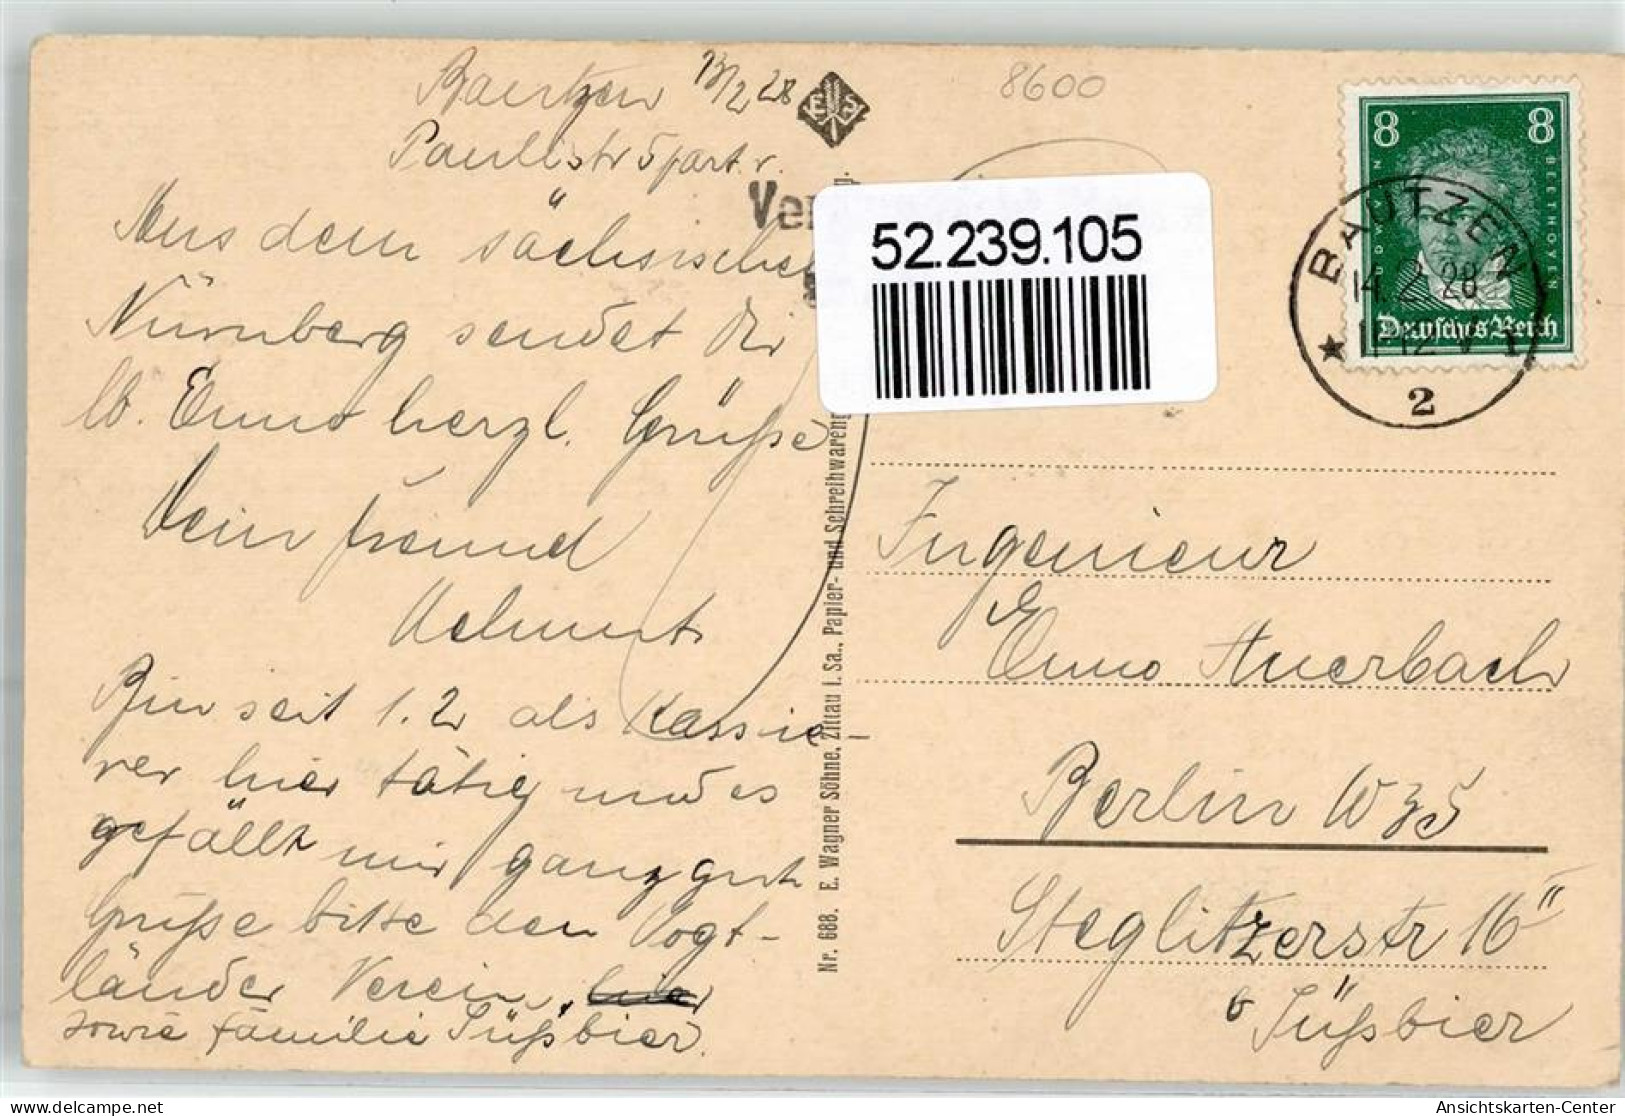 Bautzen 13/2 28
Paulistr 5 part. r.
Aus dem sächsischen
Nürnberg sendet Dir
lb. Enno herzl. Grüße
Dein Freund
Helmut
Bin seit 1.2 als Kassie-
rer hier tätig und es
gefällt mir ganz gut
Grüße bitte den Vogt-
länder Verein,
sowie Familie Süßbier.
E S
8600
Ver
52.239.105
Nr. 688. E. Wagner Söhne, Zittau i. Sa., Papier- und Schreibwareng
8 8
LUDWIG VAN BEETHOVEN
Deutsches Reich
BAUTZEN
14.2.28
11-12 V
2
Ingenieur
Enno Auerbach
Berlin W 35
Steglitzerstr 16 II
b Süßbier
Ansichtskarten-Center